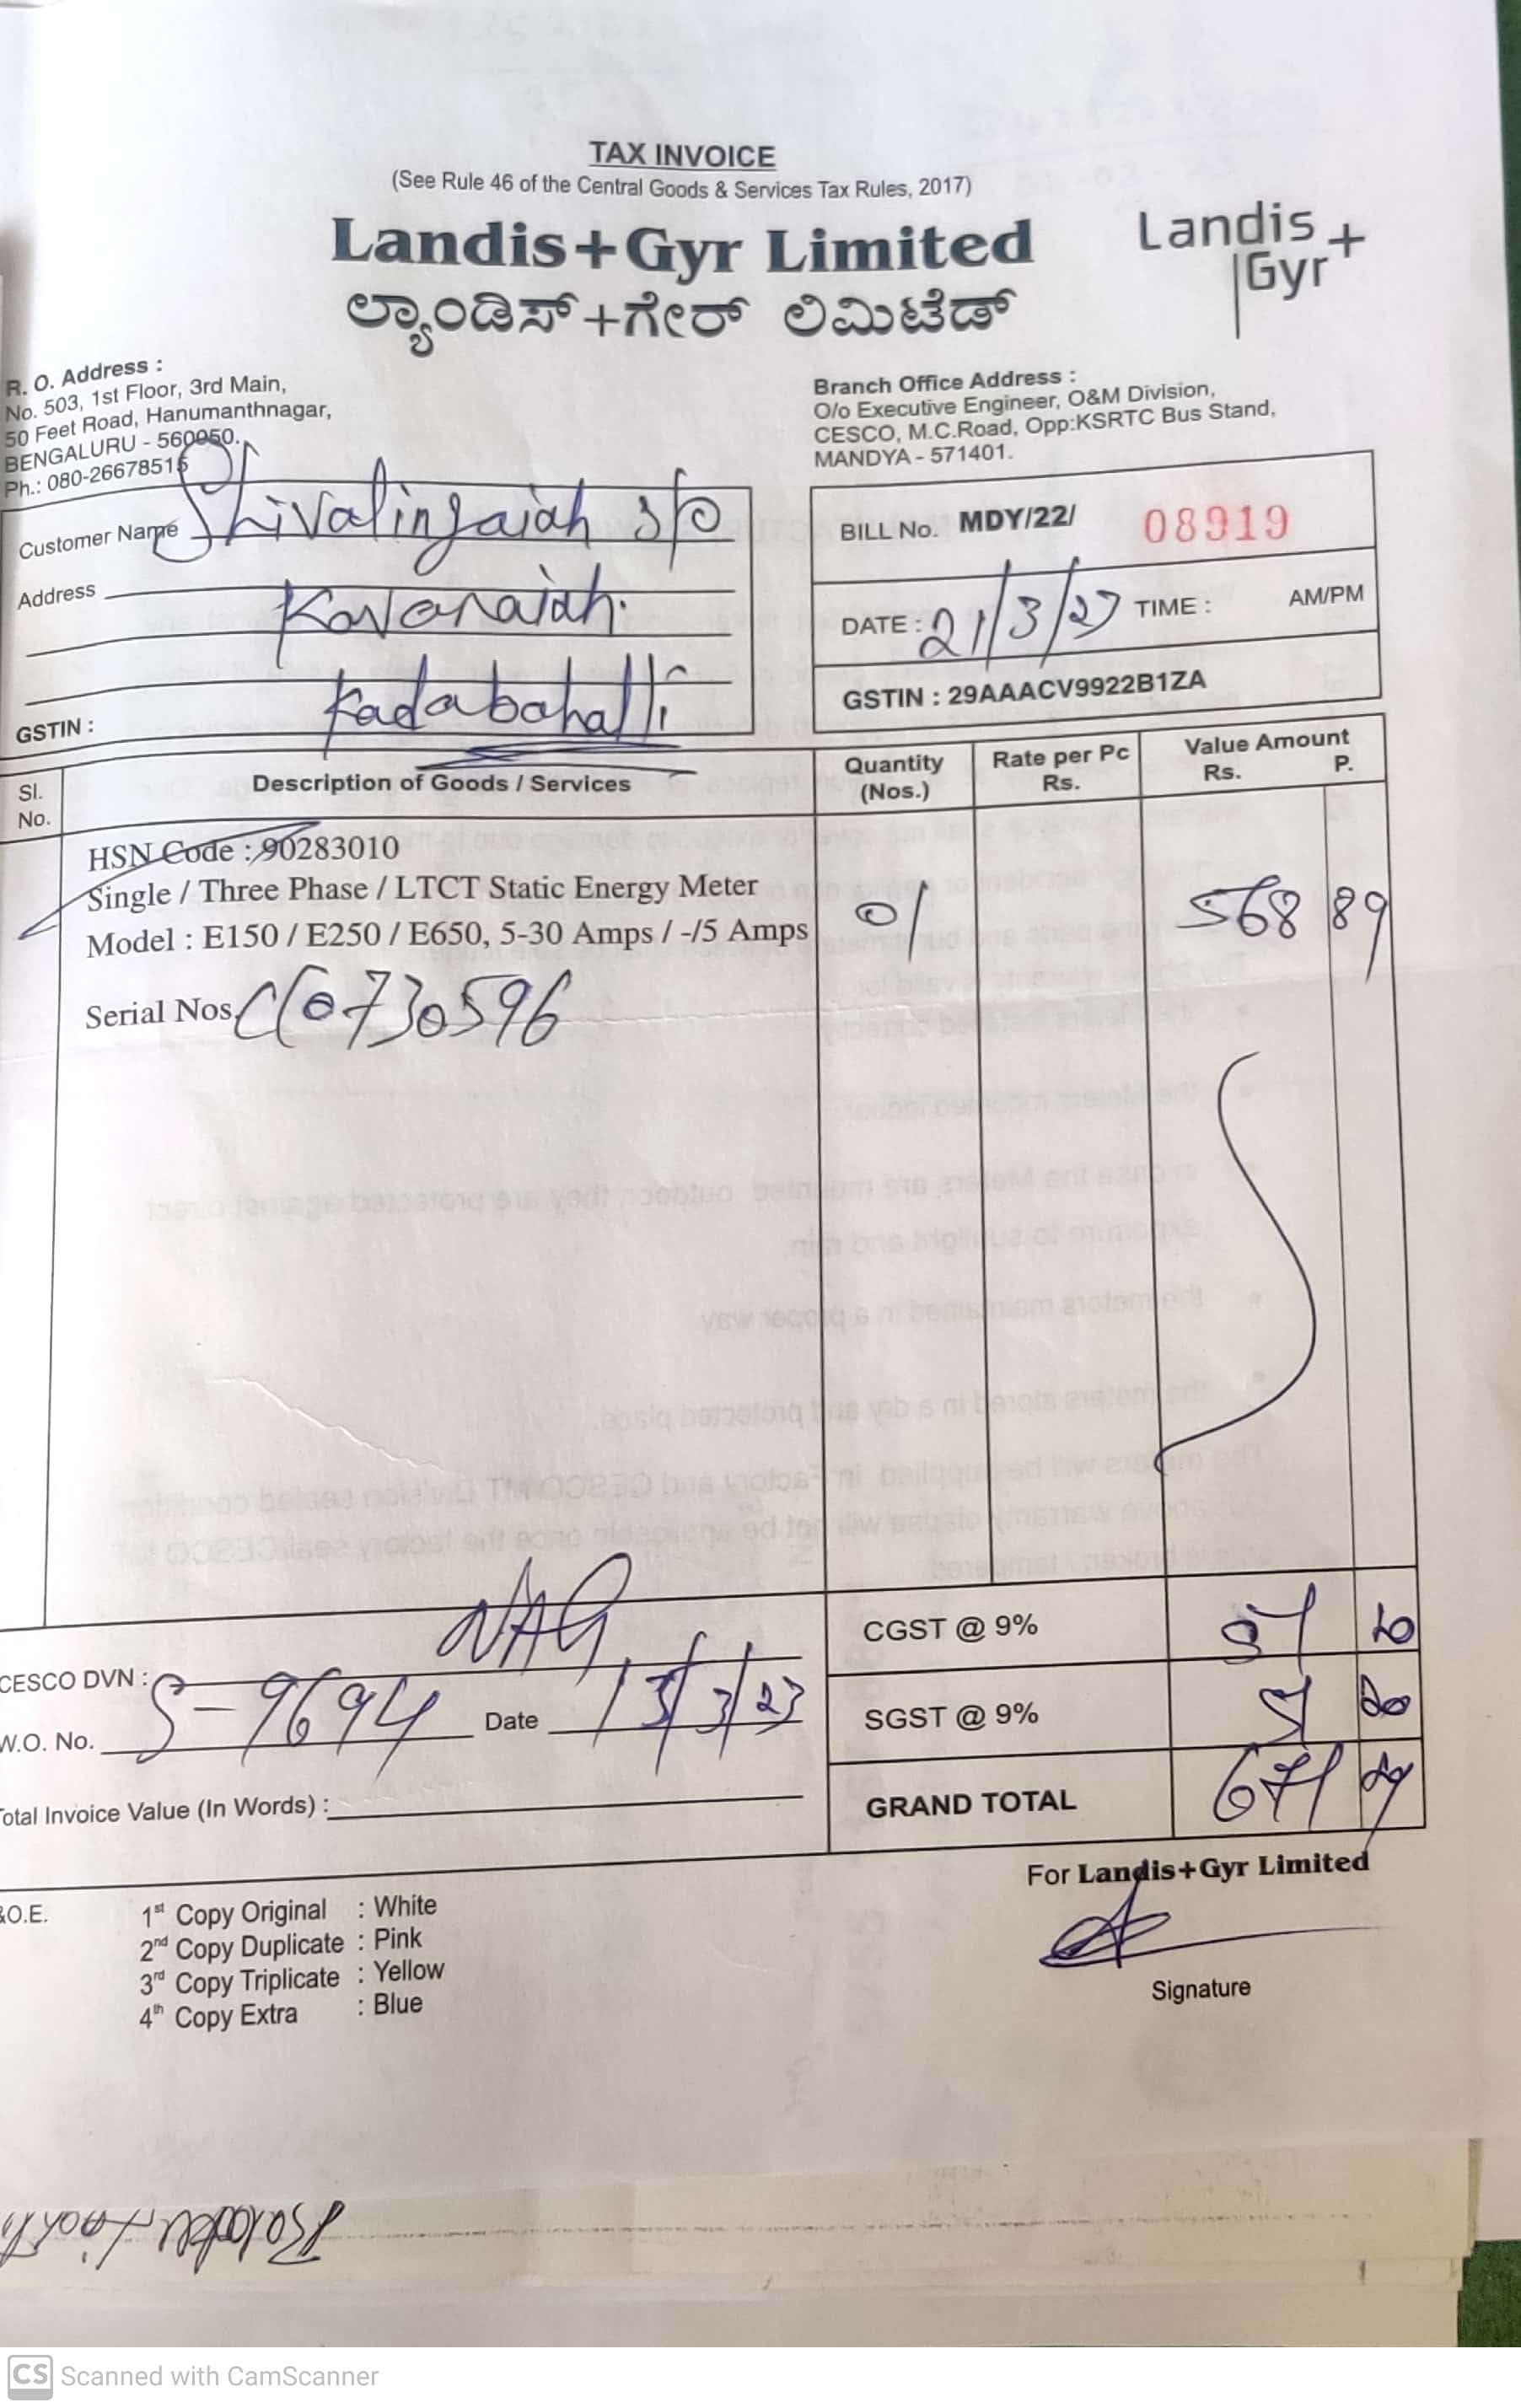 TAX INVOICE
(See Rule 46 of the Central Goods & Services Tax Rules, 2017)
Landis+Gyr Limited
ಲ್ಯಾಂಡಿಸ್+ಗೇರ್ ಲಿಮಿಟೆಡ್
Landis
Gyr+
R. O. Address :
No. 503, 1st Floor, 3rd Main,
50 Feet Road, Hanumanthnagar,
BENGALURU - 560050.
Ph.: 080-26678515
Branch Office Address :
O/o Executive Engineer, O&M Division,
CESCO, M.C.Road, Opp:KSRTC Bus Stand,
MANDYA - 571401.
Customer Name Shivalingaiah s/o
Address
Kadabahalli
GSTIN :
BILL No. MDY/22/ 08919
DATE : 21/3/23 TIME : AM/PM
GSTIN : 29AAACV9922B1ZA
Sl. No. Description of Goods / Services Quantity (Nos.) Rate per Pc Rs. Value Amount Rs. P.
HSN Code : 90283010
Single / Three Phase / LTCT Static Energy Meter
Model : E150 / E250 / E650, 5-30 Amps / -/5 Amps 01 568 89
Serial Nos. 0730596
NAG
CESCO DVN :
W.O. No. S-9694 Date 15/3/23
Total Invoice Value (In Words) :
CGST @ 9% 51 20
SGST @ 9% 51 20
GRAND TOTAL 671 29
For Landis+Gyr Limited
Signature
&O.E.
1st Copy Original : White
2nd Copy Duplicate : Pink
3rd Copy Triplicate : Yellow
4th Copy Extra : Blue
CS Scanned with CamScanner